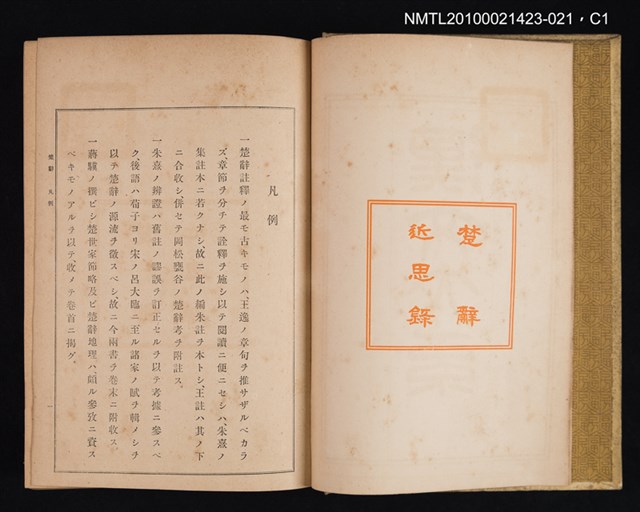 NMTL20100021423-021，C1
楚辭
近思錄
凡例
一楚辭註釋ノ最モ古キモノハ、王逸ノ章句ヲ推サザルベカラ
ズ、章節ヲ分チテ詮釋ヲ施シ以テ閱讀ニ便ニセシハ、朱熹ノ
集註本ニ若クナシ、故ニ此ノ編朱註ヲ本トシ、王註ハ其ノ下
ニ合收シ、併セテ岡松甕谷ノ楚辭考ヲ附註ス。
一朱熹ノ辨證ハ舊註ノ謬誤ヲ訂正セルヲ以テ考據ニ參スベ
ク、後語ハ荀子ヨリ宋ノ呂大臨ニ至ル諸家ノ賦ヲ輯ノシヲ
以テ楚辭ノ源流ヲ徵スベシ、故ニ今兩書ヲ卷末ニ附收ス。
一蔣驥ノ撰ビシ楚世家節略及ビ楚辭地理ハ、頗ル參攷ニ資ス
ベキモノアルヲ以テ、收メテ卷首ニ揭グ。
楚辭 凡例
一